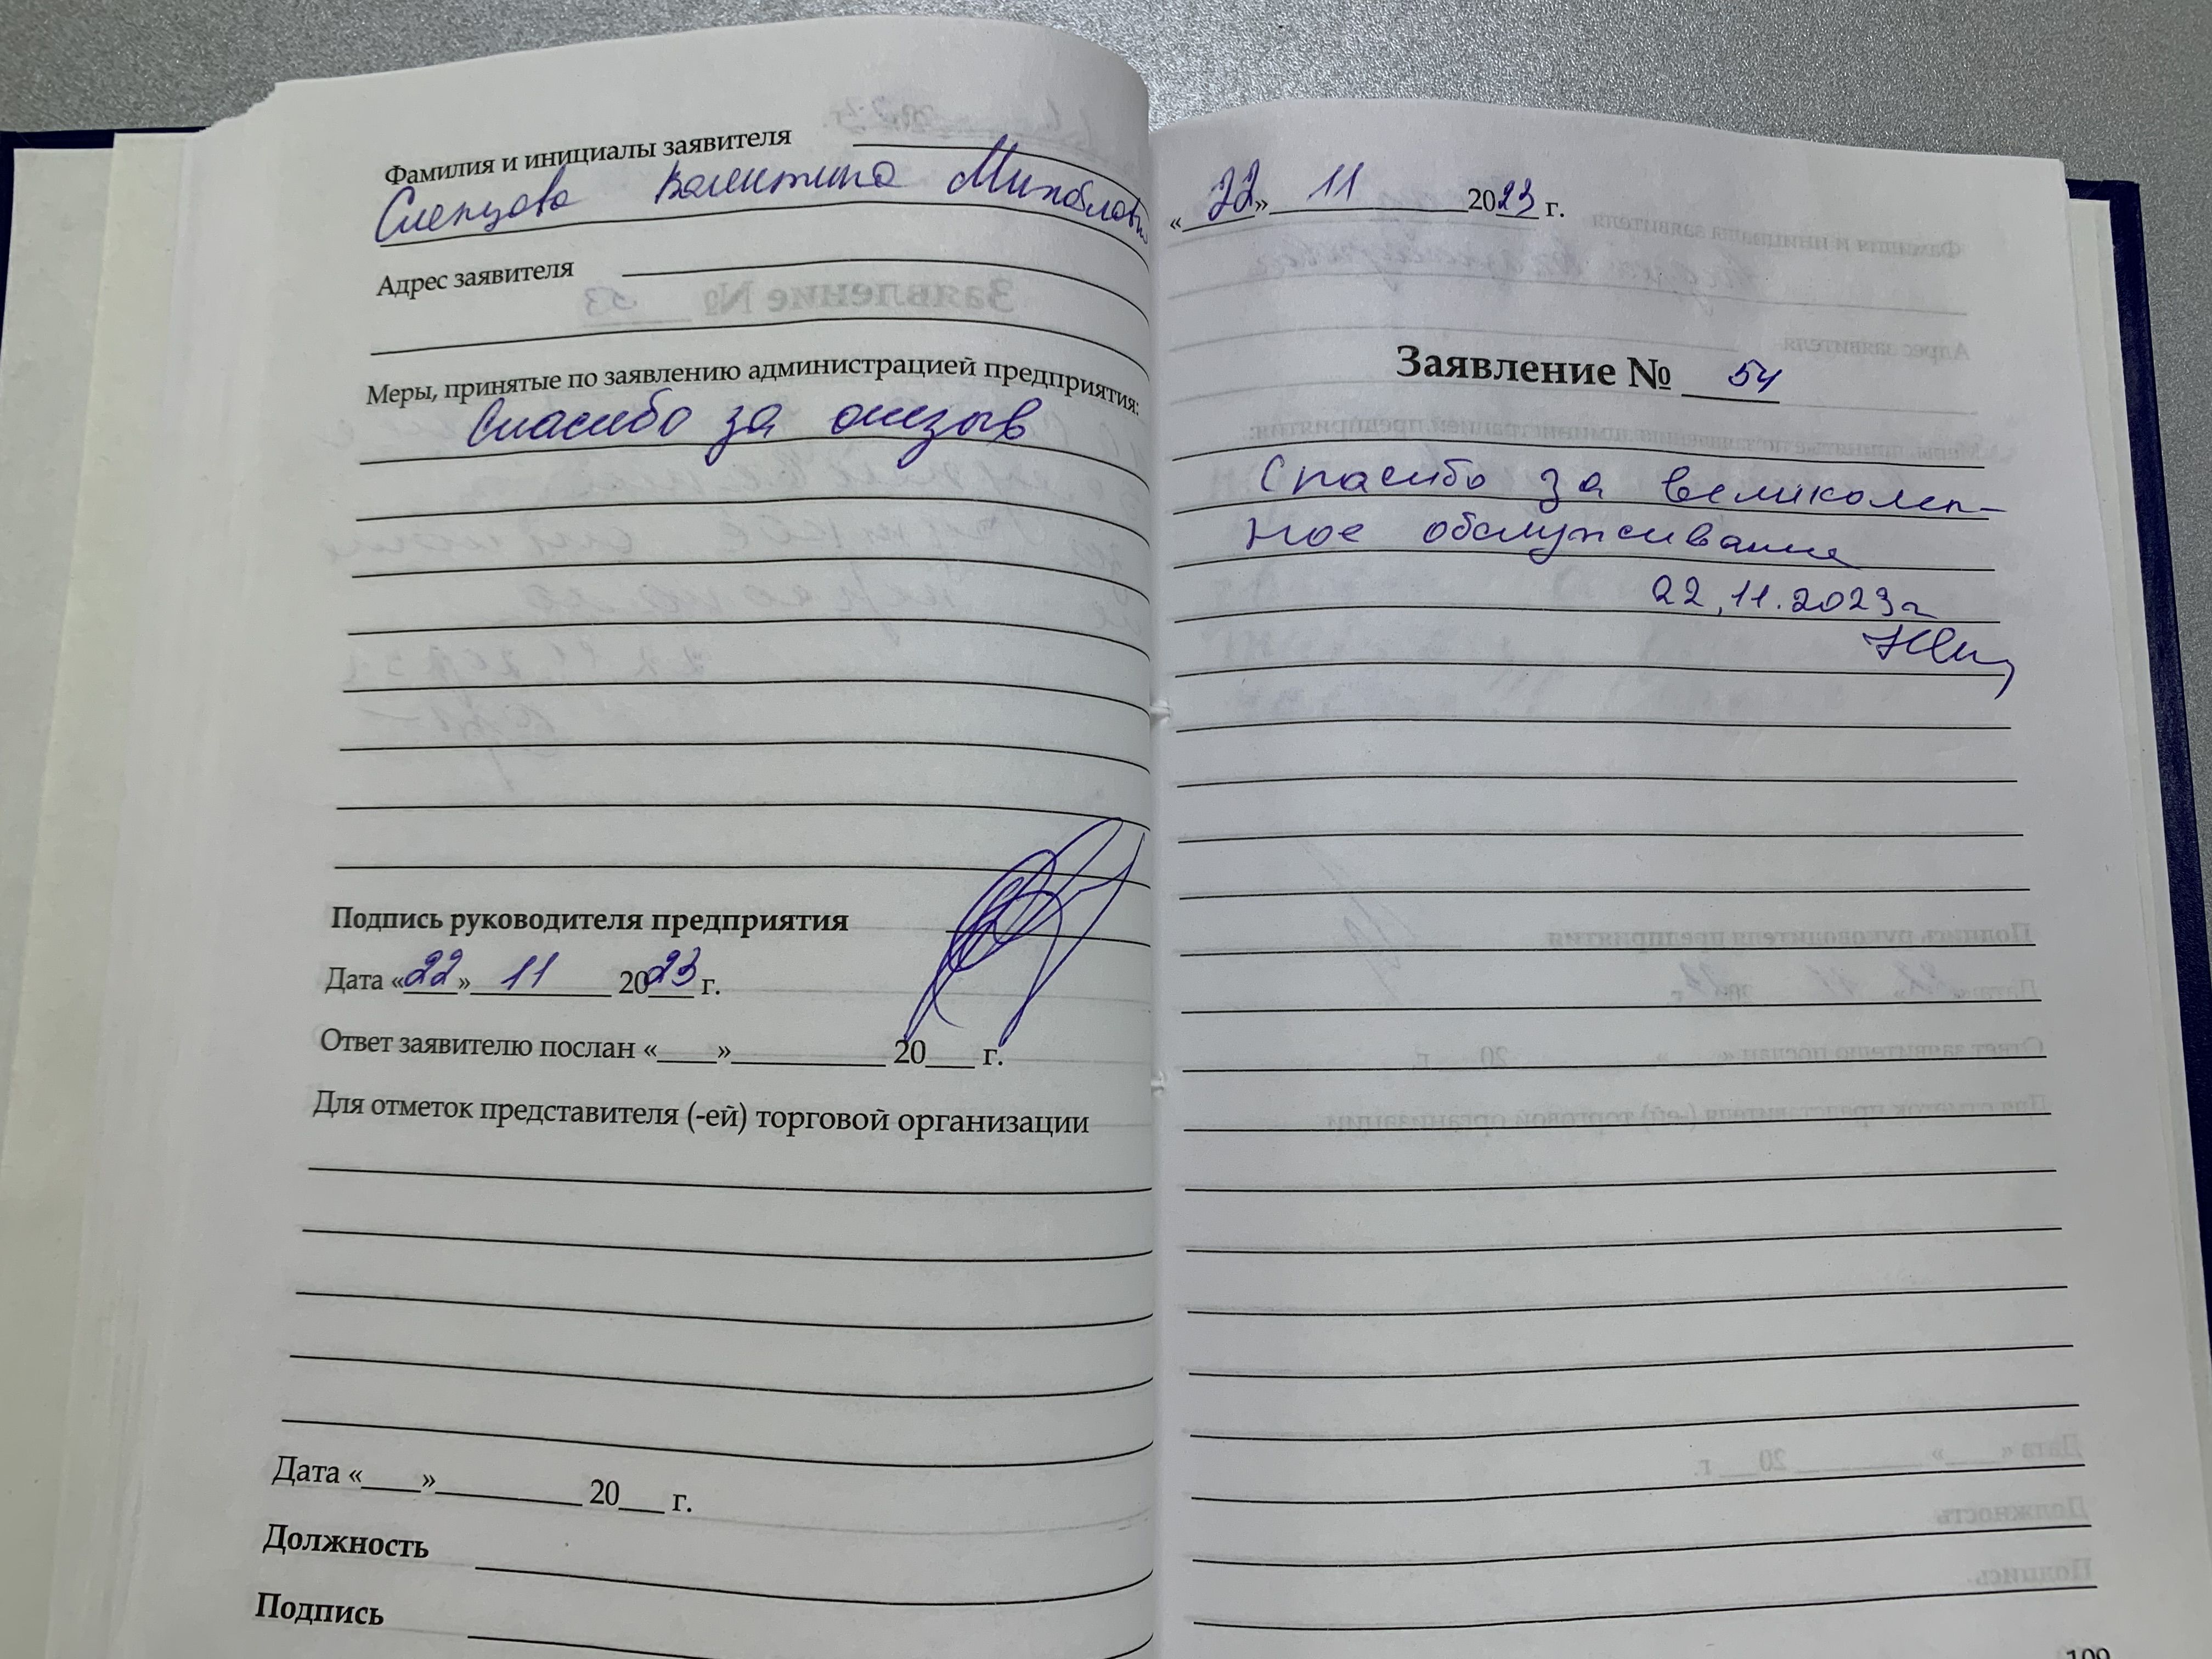 Фамилия и инициалы заявителя
Слепцова Валентина
Адрес заявителя
Меры, принятые по заявлению администрацией предприятия:
Спасибо за отзыв
Подпись руководителя предприятия
Дата «22» 11 2023 г.
Ответ заявителю послан «____»__________ 20___ г.
Для отметок представителя (-ей) торговой организации
Дата «____»__________ 20___ г.
Должность
Подпись
«22» 11 2023 г.
Заявление № 54
Спасибо за великолеп-
ное обслуживание
22.11.2023г
109